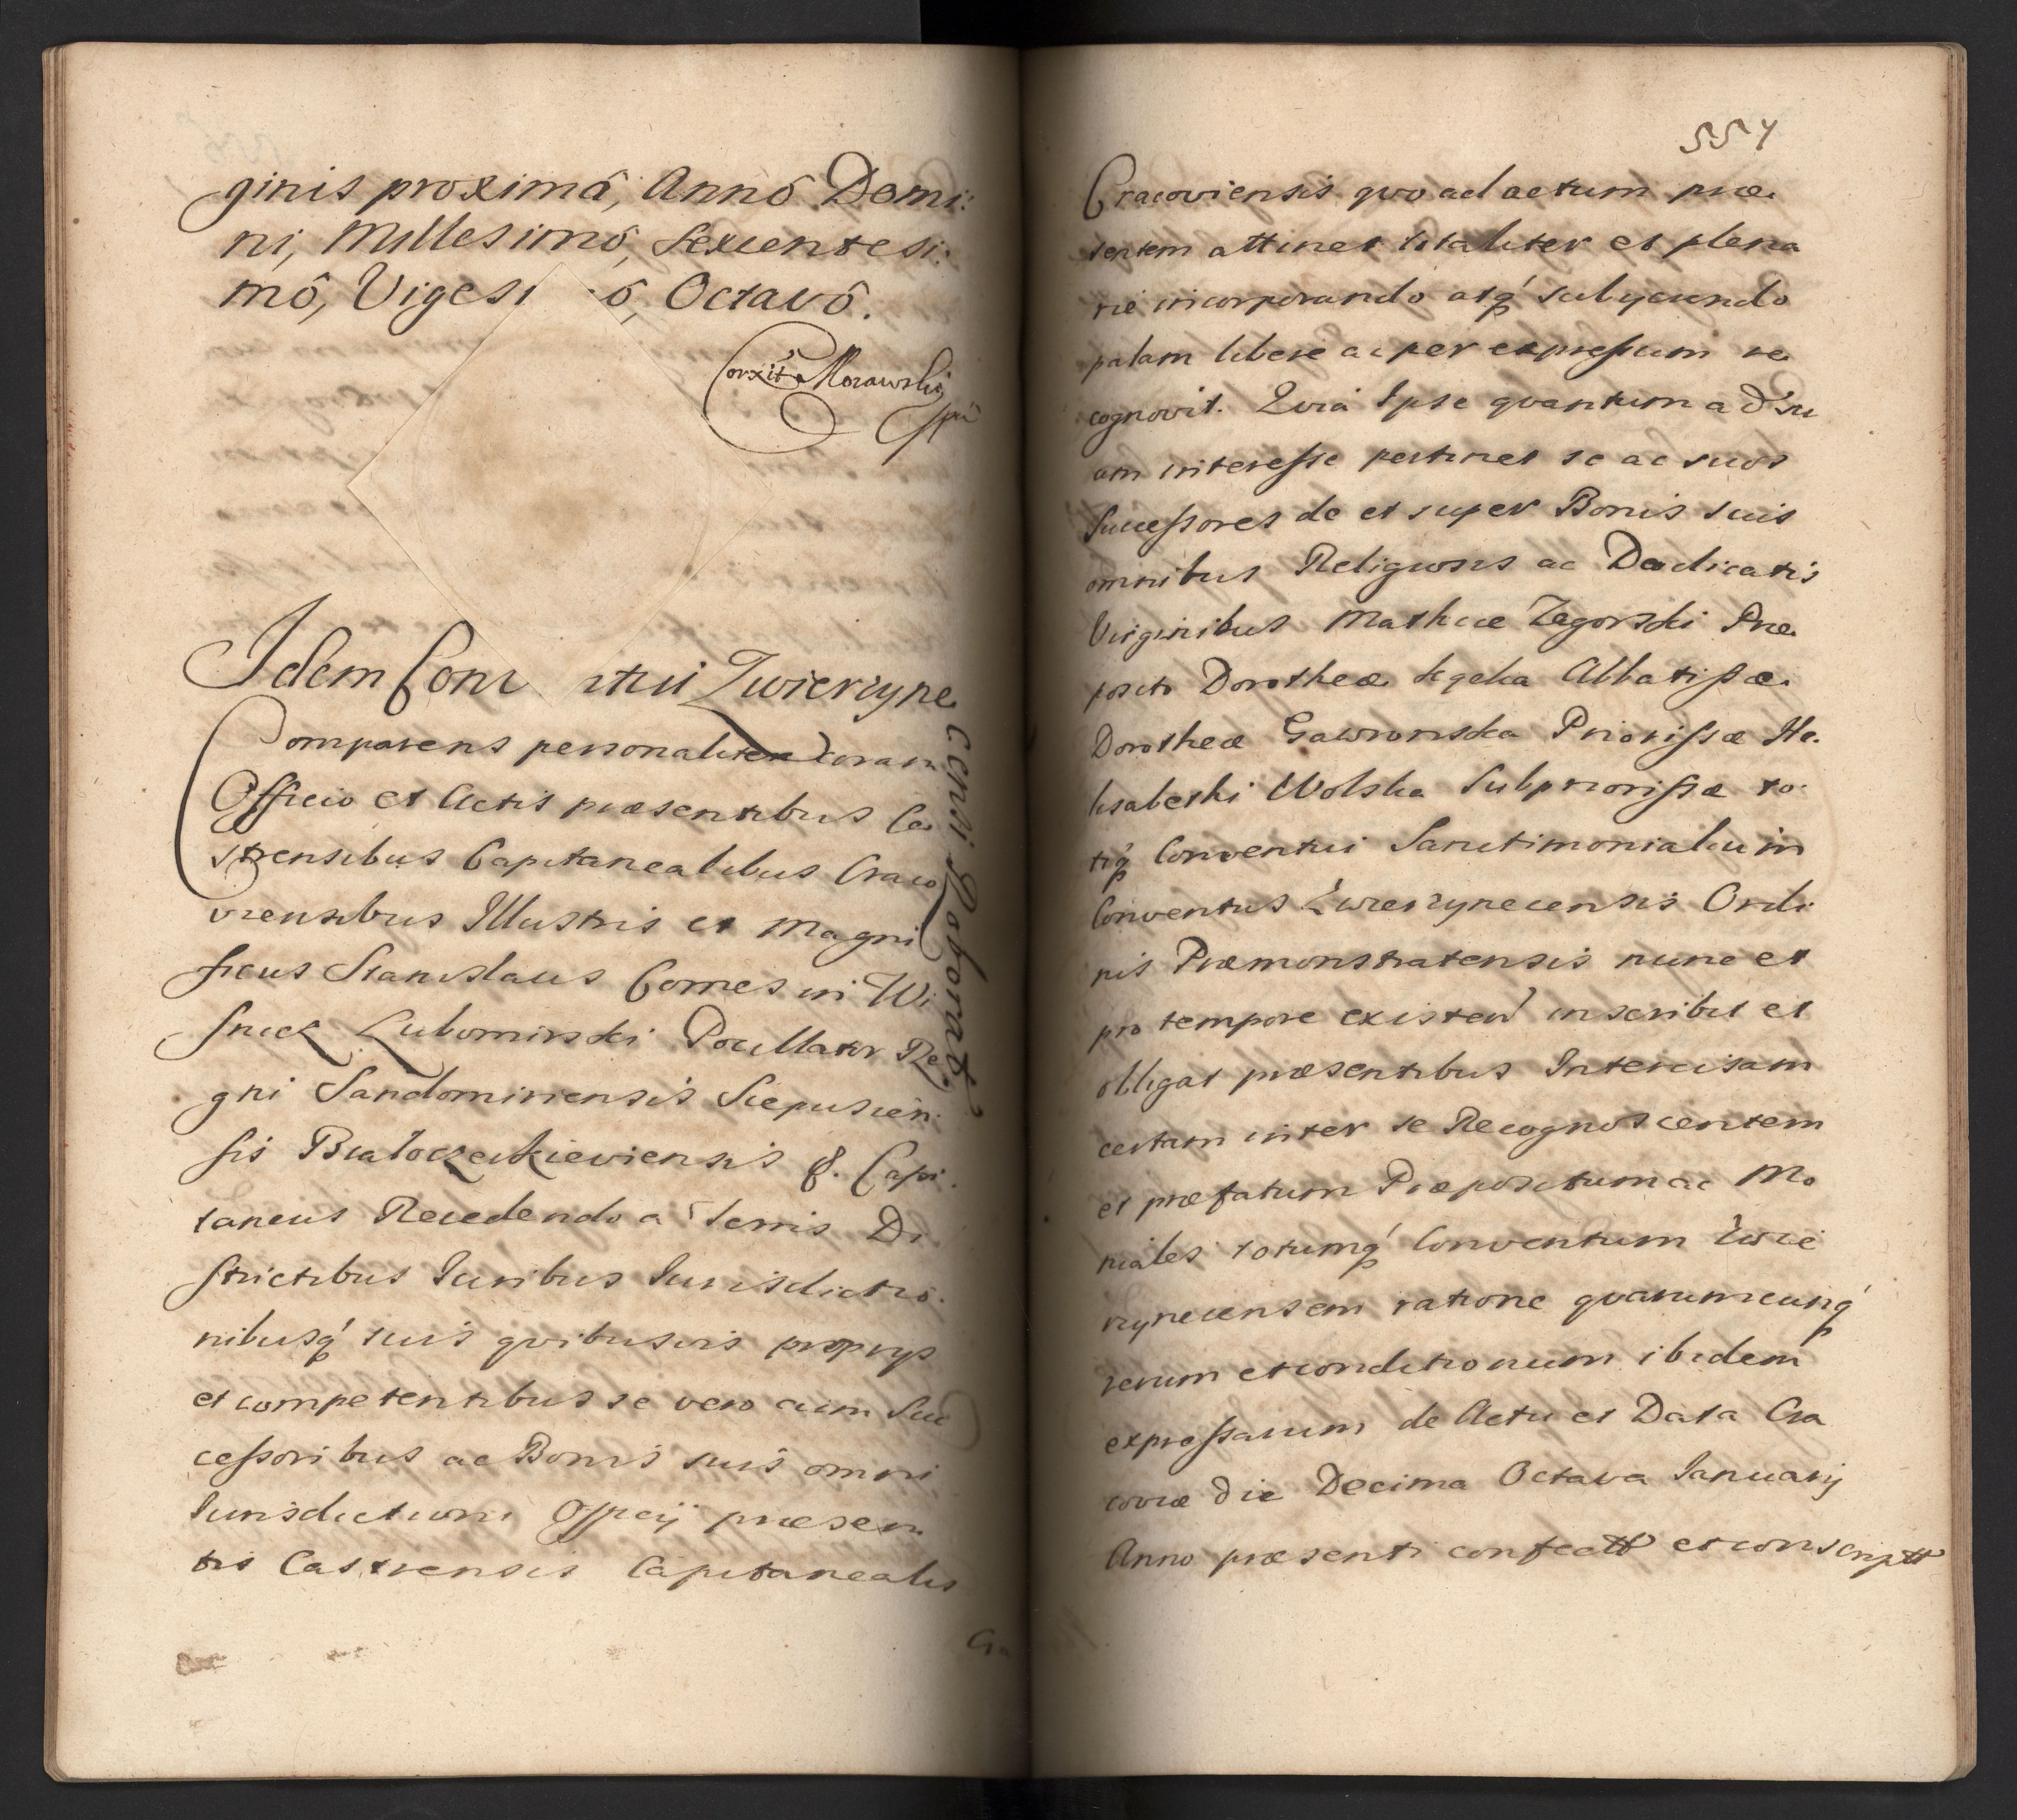 ginis proximâ, Annô Domi:
ni, Millesimô, Sexcentesi:
mô, Vigesi ô, Octavô.
Corxit Morawski
Idem Conv ntui Zwierzyne
censi Roborat
Comparens personaliter coram
Officio et Actis præsentibus Ca
strensibus Capitanealibus Craco
viensibus Illustris et Magni
ficus Stanislaus Comes in Wi
snicz Lubomirski Pocillator Re
gni Sandomiriensis Scepusien:
sis Białocerkieviensis &. Capi.
taneus Recedendo a Terris Di
strictibus Iuribus Iurisdictio.
nibusq́ suis qvibusvis proprys
et competentibus se vero cum Suc
cessoribus ac Bonis suis omni
Iurisdictioni Officij præsen
tis Castrensis Capitanealis
Cra
554
Cracoviensis qvo ad actum præ.
sentem attinet totaliter et plena
rie incorporando atq́ subyciendo
palam libere ac per expressum re.
cognovit. Qvia Ipse qvantum ad su
um interesse pertinet se ac suos
Successores de et super Bonis suis
omnibus Religiosis ac Dedicatis
Virginibus Mathiæ Zagorski Præ.
posito Dorotheæ Kącka Abbatissæ.
Dorotheæ Gawronska Priorissæ He.
lisabethi Wolska Subpriorissæ to.
tiq́ Conventui Sanctimonialium
Conventus Zwierzynecensis Ordi
nis Præmonstratensis nunc et
pro tempore existen inscribit et
obligat præsentibus Intercisam
certam inter se Recognoscentem
et præfatum Præpositum ac Mo
niales totumq́ Conventum Zwie
rzynecensem ratione qvarumcunq́
rerum et conditionum ibidem
expressarum de Actu et Data Cra
coviæ die Decima Octava Ianuarij
Anno præsenti confectt et conscriptt